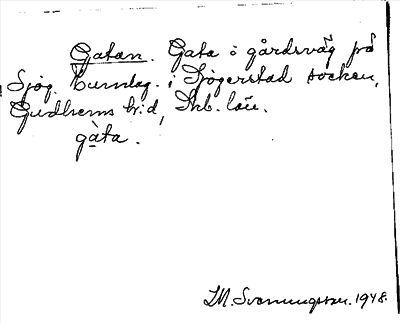 Gatan. Gata o gårdsväg på
Sjög. Lunda. i Sjögerstad socken,
Gudhems h:d, Skb. län.
gàta.
IM. Svenungsson. 1948.